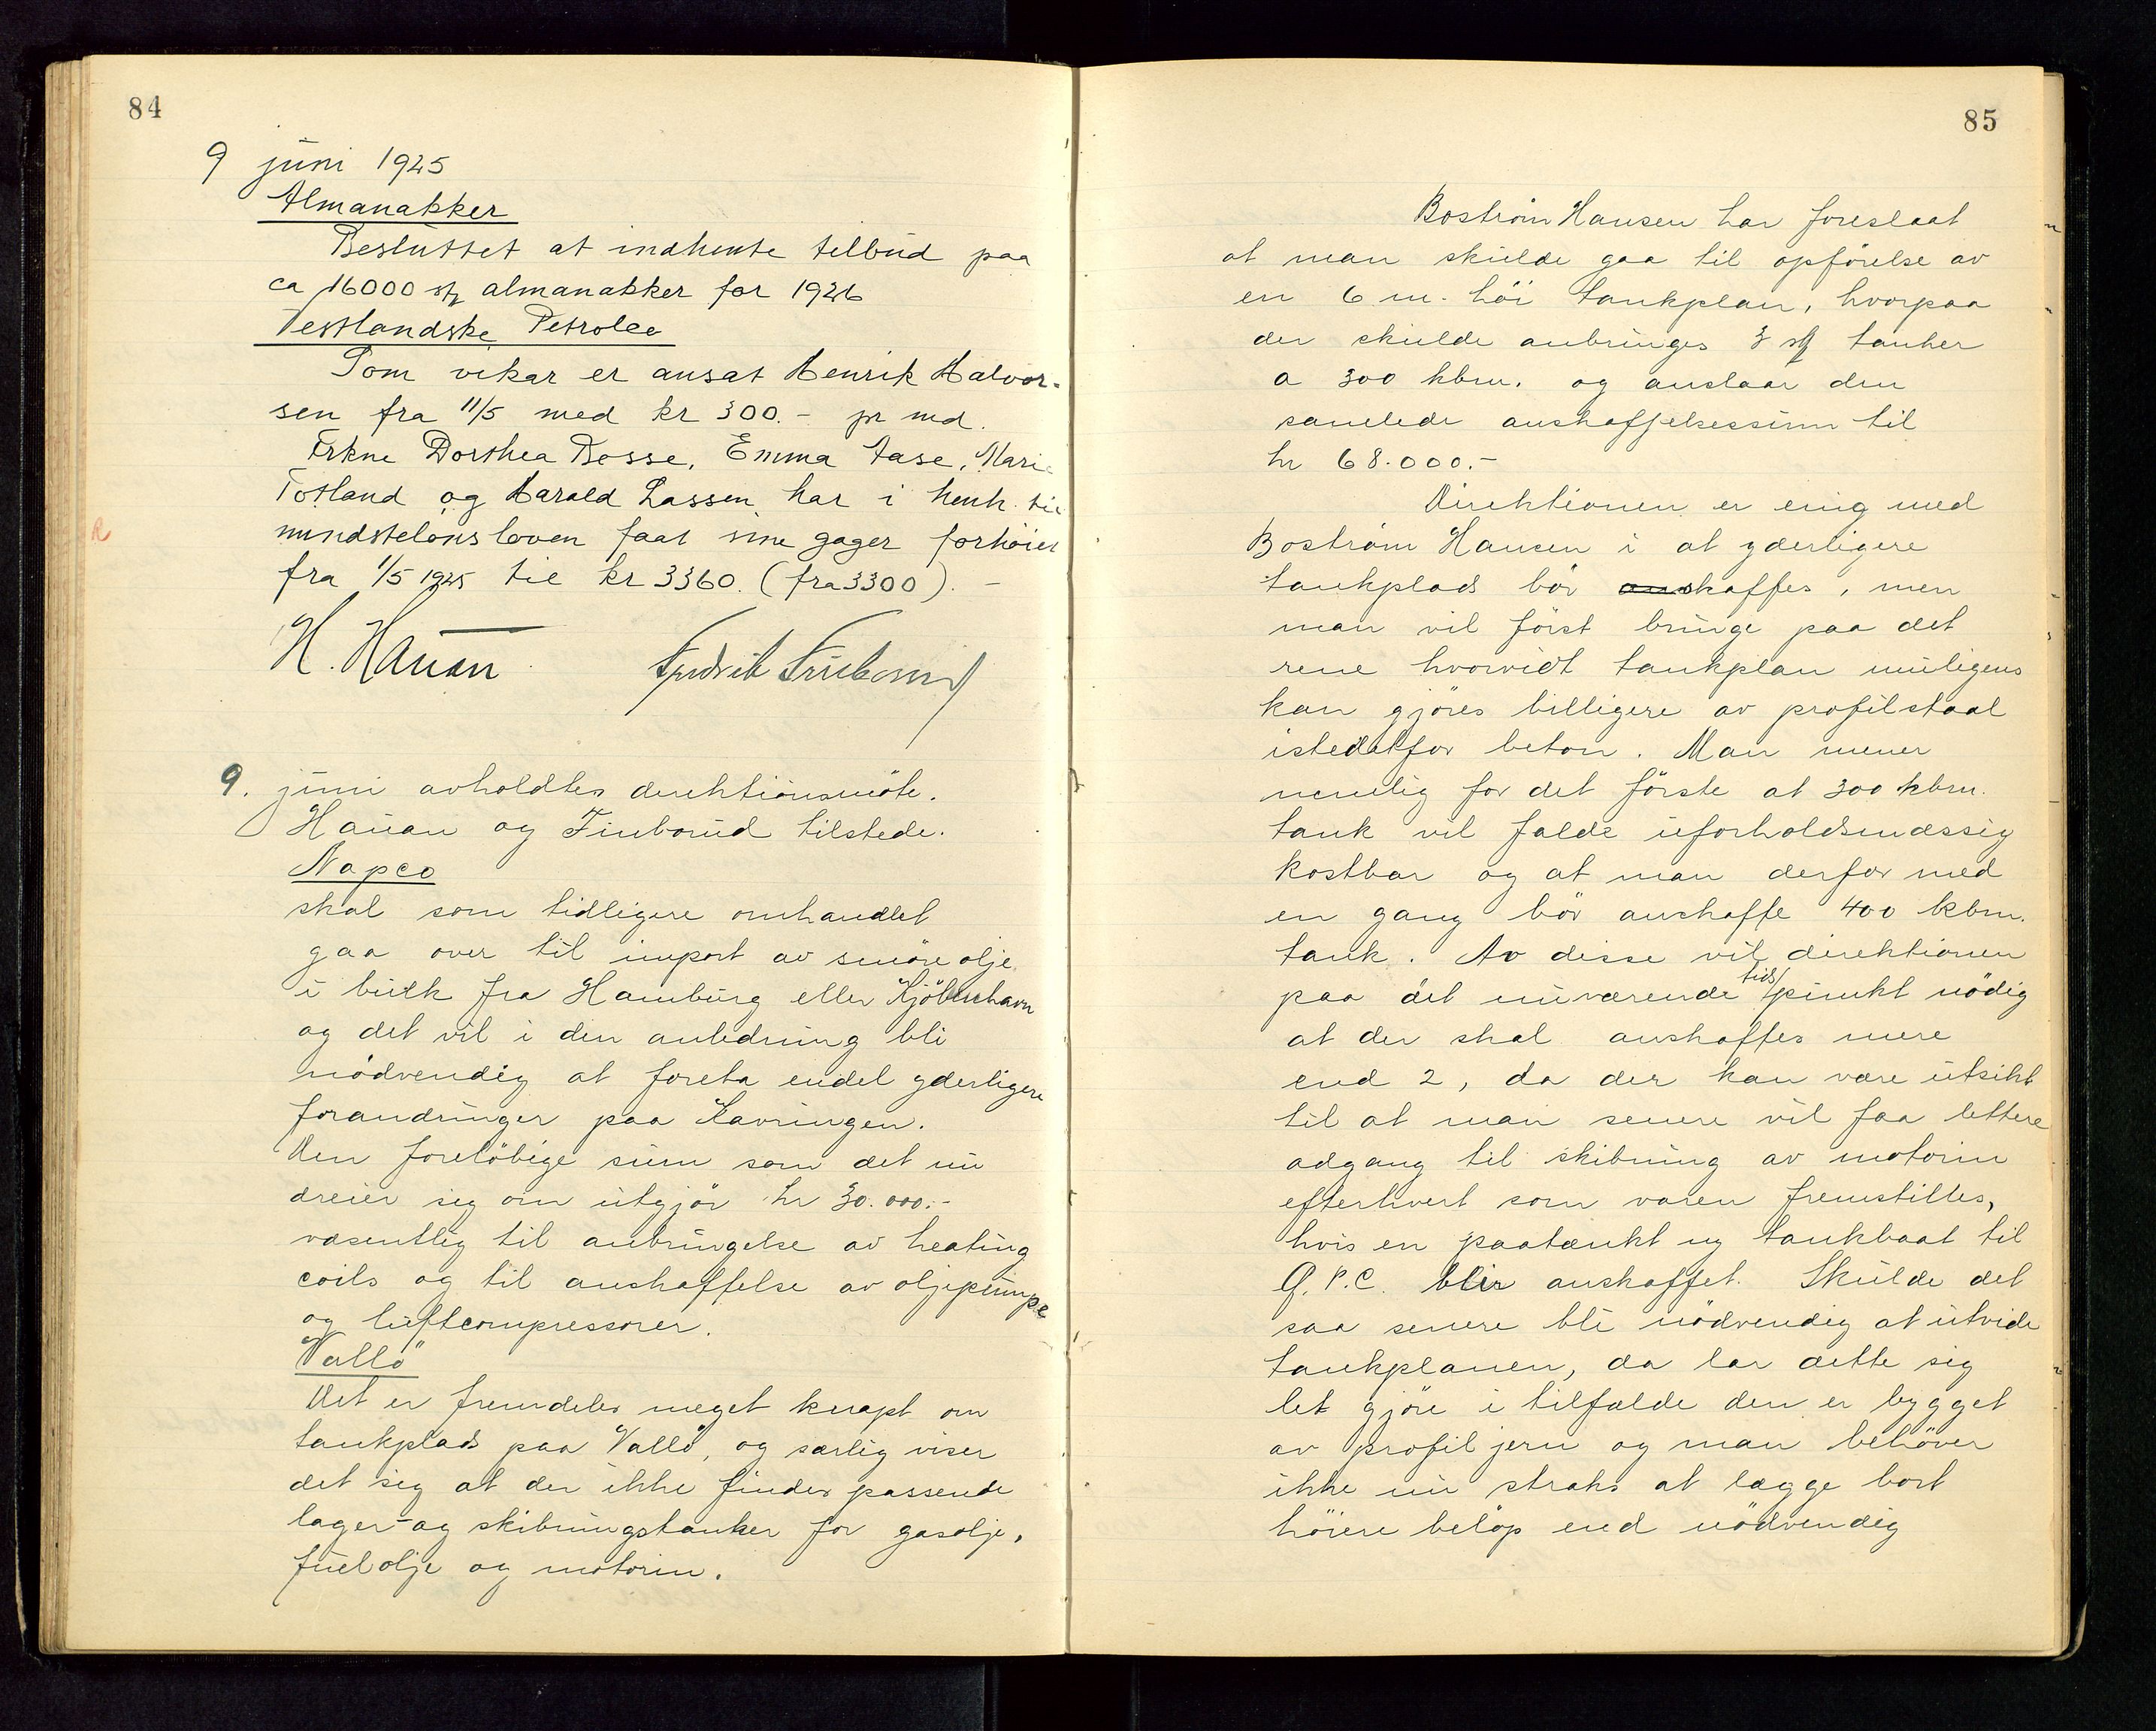 84
9 juni 1925
Almanakker
Besluttet at indhente tilbud paa
ca 16000 stk almanakker for 1926
Vestlandske Petrolco
Som vikar er ansat Henrik Halvor-
sen fra 11/5 med kr 300.- pr md.
Frkne Dorthea Bosse, Emma Aase, Marie
Totland og Harald Lassen har i henh. til
mindstelönsloven faat sine gager forhöiet
fra 1/5 1925 til kr 3360. (fra 3300). -
H. Hauan Fredrik Finborud
9. juni avholdtes direktionsmöte.
Hauan og Finborud tilstede.
Napco
skal som tidligere omhandlet
gaa over til import av smöreolje
i bulk fra Hamburg eller Kjöbenhavn
og det vil i den anledning bli
nödvendig at foreta endel yderligere
forandringer paa Kavringen.
Den forelöbige sum som det nu
dreier sig om utgjör kr 30.000.-
væsentlig til anbringelse av heating
coils og til anskaffelse av oljepumpe
og luftcompressorer.
"Vallö"
Det er fremdeles meget knapt om
tankplads paa Vallö, og særlig viser
det sig at der ikke findes passende
lager- og skibningstanker for gasolje,
fuelolje og motorin.
85
Boström Hansen har foreslaat
at man skulde gaa til opförelse av
en 6 m. höi tankplan, hvorpaa
der skulde anbringes 3 stk tanker
a 300 kbm. og anslaar den
samlede anskaffelsessum til
kr 68.000.-
Direktionen er enig med
Boström Hansen i at yderligere
tankplads bör anskaffes, men
man vil först bringe paa det
rene hvorvidt tankplan muligens
kan gjöres billigere av profilstaal
istedetfor beton. Man mener
nemlig for det förste at 300 kbm.
tank vil falde uforholdsmæssig
kostbar og at man derfor med
en gang bör anskaffe 400 kbm.
tank. Av disse vil direktionen
paa det nuværende tidspunkt nödig
at der skal anskaffes mere
end 2, da der kan være utsikt
til at man senere vil faa lettere
adgang til skibning av motorin
efterhvert som varen fremstilles,
hvis en paatænkt ny tankbaat til
Ö.P.C. blir anskaffet. Skulde det
saa senere bli nödvendig at utvide
tankplanen, da lar dette sig
let gjöre i tilfælde den er bygget
av profiljern og man behöver
ikke nu straks at lægge bort
höiere belöp end nödvendig